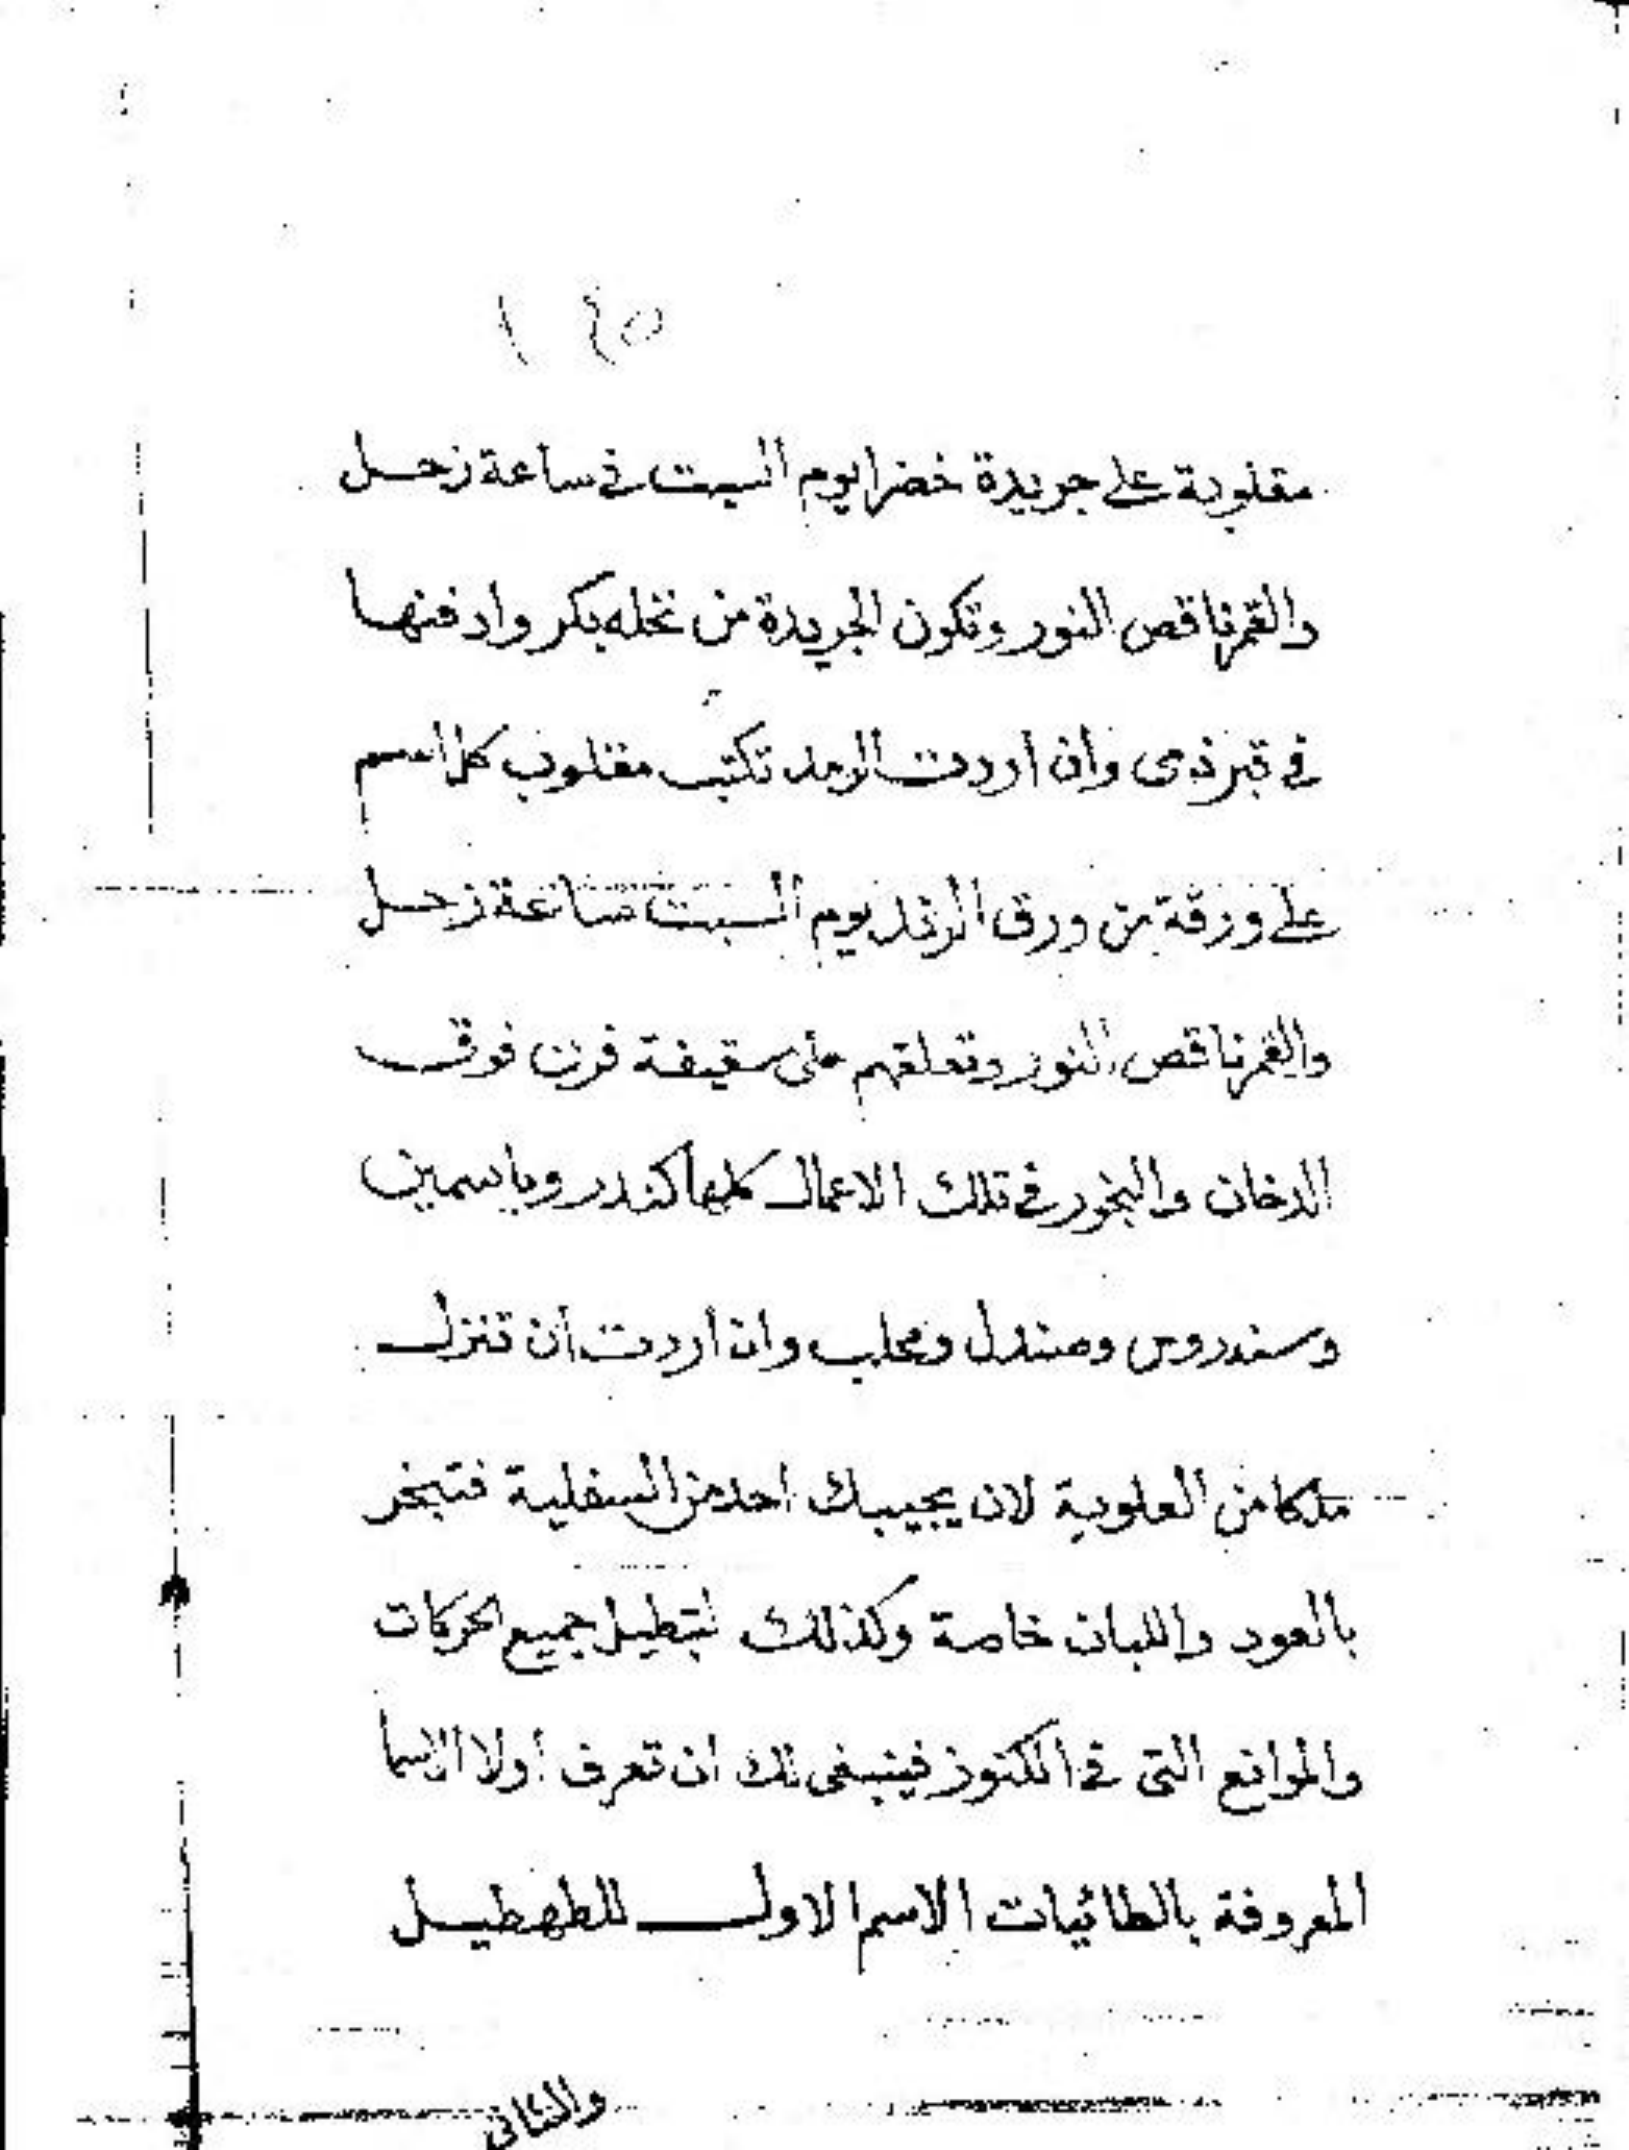 ١٢٥
مقلوبة على جريدة خضرا يوم السبت في ساعة زحل
والقمر ناقص النور وتكون الجريدة من نخله بكر وادفنها
في قبر ذمى وان اردت الرمد تكتب مقلوب كل اسم
على ورقة من ورق يوم السبت ساعة زحل
والقمر ناقص النور وتعلقهم على سقيفة فرن فوق
الدخان والبخور في تلك الاعمال كلها كندر وياسمين
وسندروس وصندل ومحلب وان اردت ان تنزل
ملكا من العلوية لان يجيبك احد من السفلية فتبخر
بالعود واللبان خاصة وكذلك لتبطيل جميع الحركات
والموانع التى في الكنوز فينبغى لك ان تعرف اولا الاسما
المعروفة بالطائيات الاسم الاول للطهطيل
والثانى